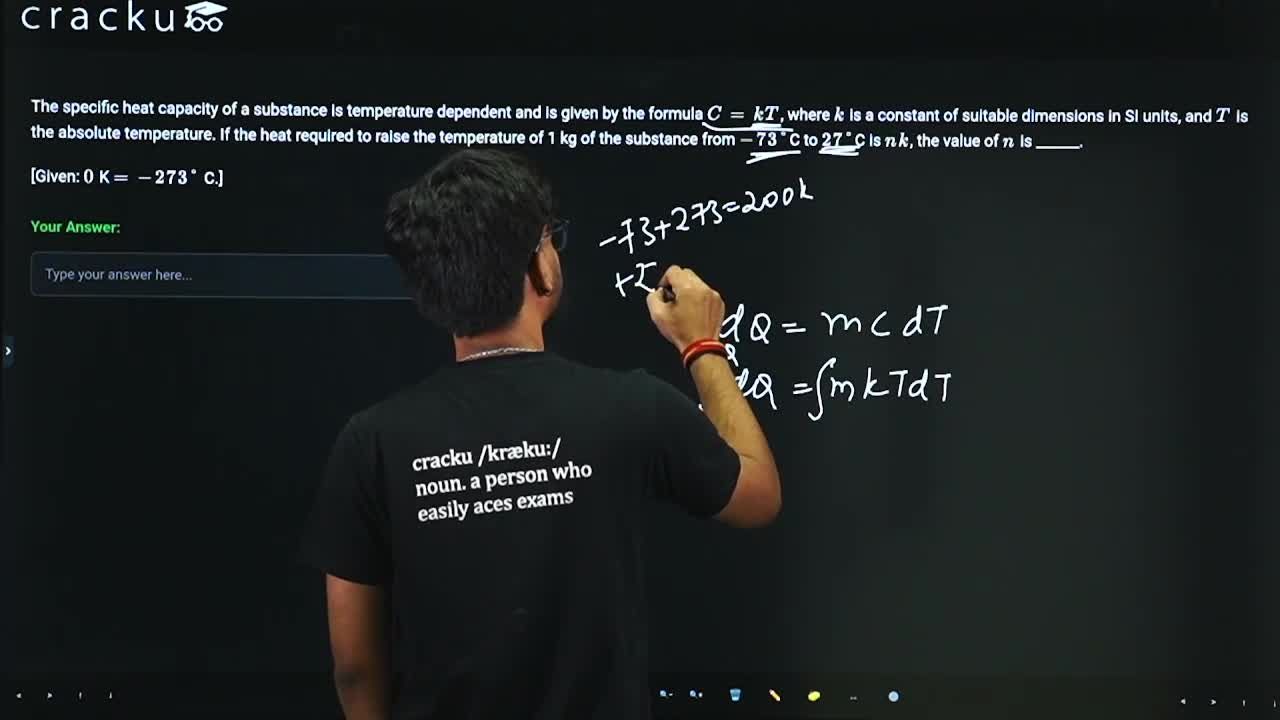 cracku
The specific heat capacity of a substance is temperature dependent and is given by the formula C = kT, where k is a constant of suitable dimensions in SI units, and T is
the absolute temperature. If the heat required to raise the temperature of 1 kg of the substance from −73°C to 27°C is nk, the value of n is _____.
[Given: 0 K = −273° C.]
Your Answer:
Type your answer here...
-73+273=200k
dQ = mcdT
dQ = ∫mkTdT
cracku /kræku:/
noun. a person who
easily aces exams